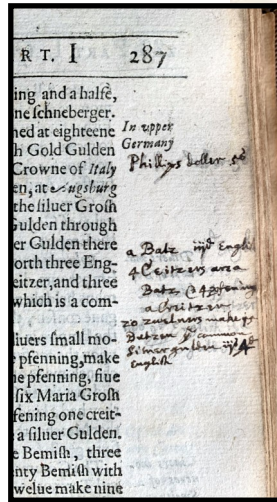 RT. I 287
ing and a halfe,
ne ſchneberger.
ned at eighteene
h Gold Gulden
Crowne of Italy
en, at Augsburg
the ſiluer Groſh
Gulden through
er Gulden there
orth three Eng-
eitzer, and three
which is a com-
liuers ſmall mo-
pfenning, make
e pfenning, fiue
ſix Maria Groſh
fening one creit-
a ſiluer Gulden.
e Bemiſh, three
nty Bemiſh with
welue make nine
In vpper
Germany
Phillips doller
a Batz iijd Engliſh
4 Creitzers are a
Batz & 4 pfennings
a Creitzer
20
Batzen
Siluer gulden
Engliſh